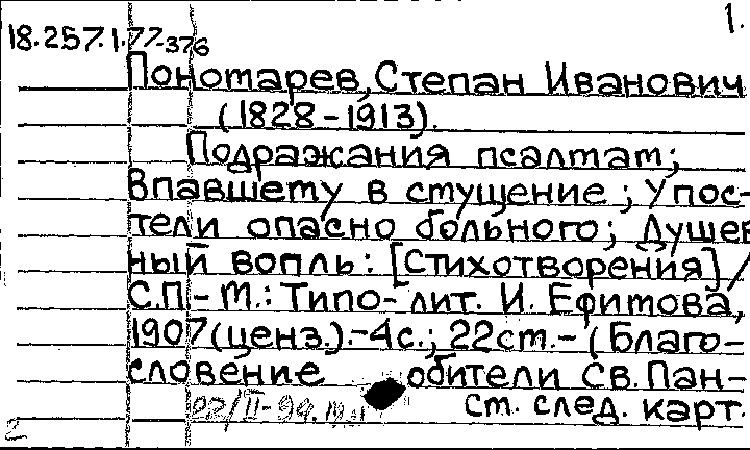 1.
18.257.1.77-376
Пономарев, Степан Иванович
(1828-1913).
Подражания псалмам;
Впавшему в смущение; У пос-
тели опасно больного; Душев
ный вопль: [Стихотворения]/
С.П.- М.: Типо-лит. И. Ефимова,
1907(ценз.).-4с.; 22см.-(Благо-
словение обители Св. Пан-
22/II-94. см. след. карт.
2